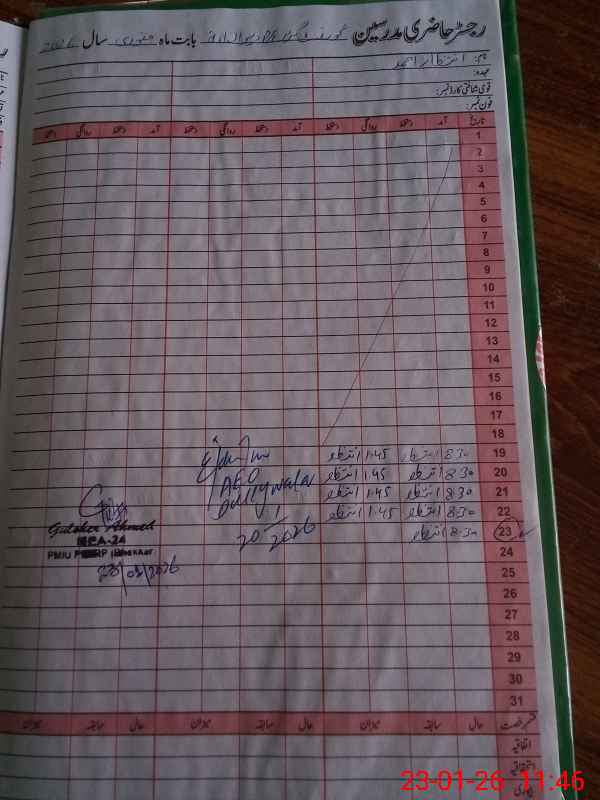 رجسٹر حاضری مدرسین گورنمنٹ بابت ماہ جنوری سال 2026
نام: انتظار احمد
عہدہ:
قومی شناختی کارڈ نمبر:
فون نمبر:
تاریخ آمد دستخط روانگی دستخط آمد دستخط روانگی دستخط آمد دستخط روانگی دستخط
1
2
3
4
5
6
7
8
9
10
11
12
13
14
15
16
17
18
19 8:30 انتظار 1:45 انتظار
20 8:30 انتظار 1:45 انتظار
21 8:30 انتظار 1:45 انتظار
22 8:30 انتظار 1:45 انتظار
23 8:30 انتظار
24
25
26
27
28
29
30
31
AEO
Dullywala
20/1/2026
Ahmed
MEA-24
PMIU
23/01/2026
قسم رخصت حال سابقہ میزان حال سابقہ میزان حال سابقہ میزان
اتفاقیہ
استحقاقیہ
بیماری
23-01-26 11:46